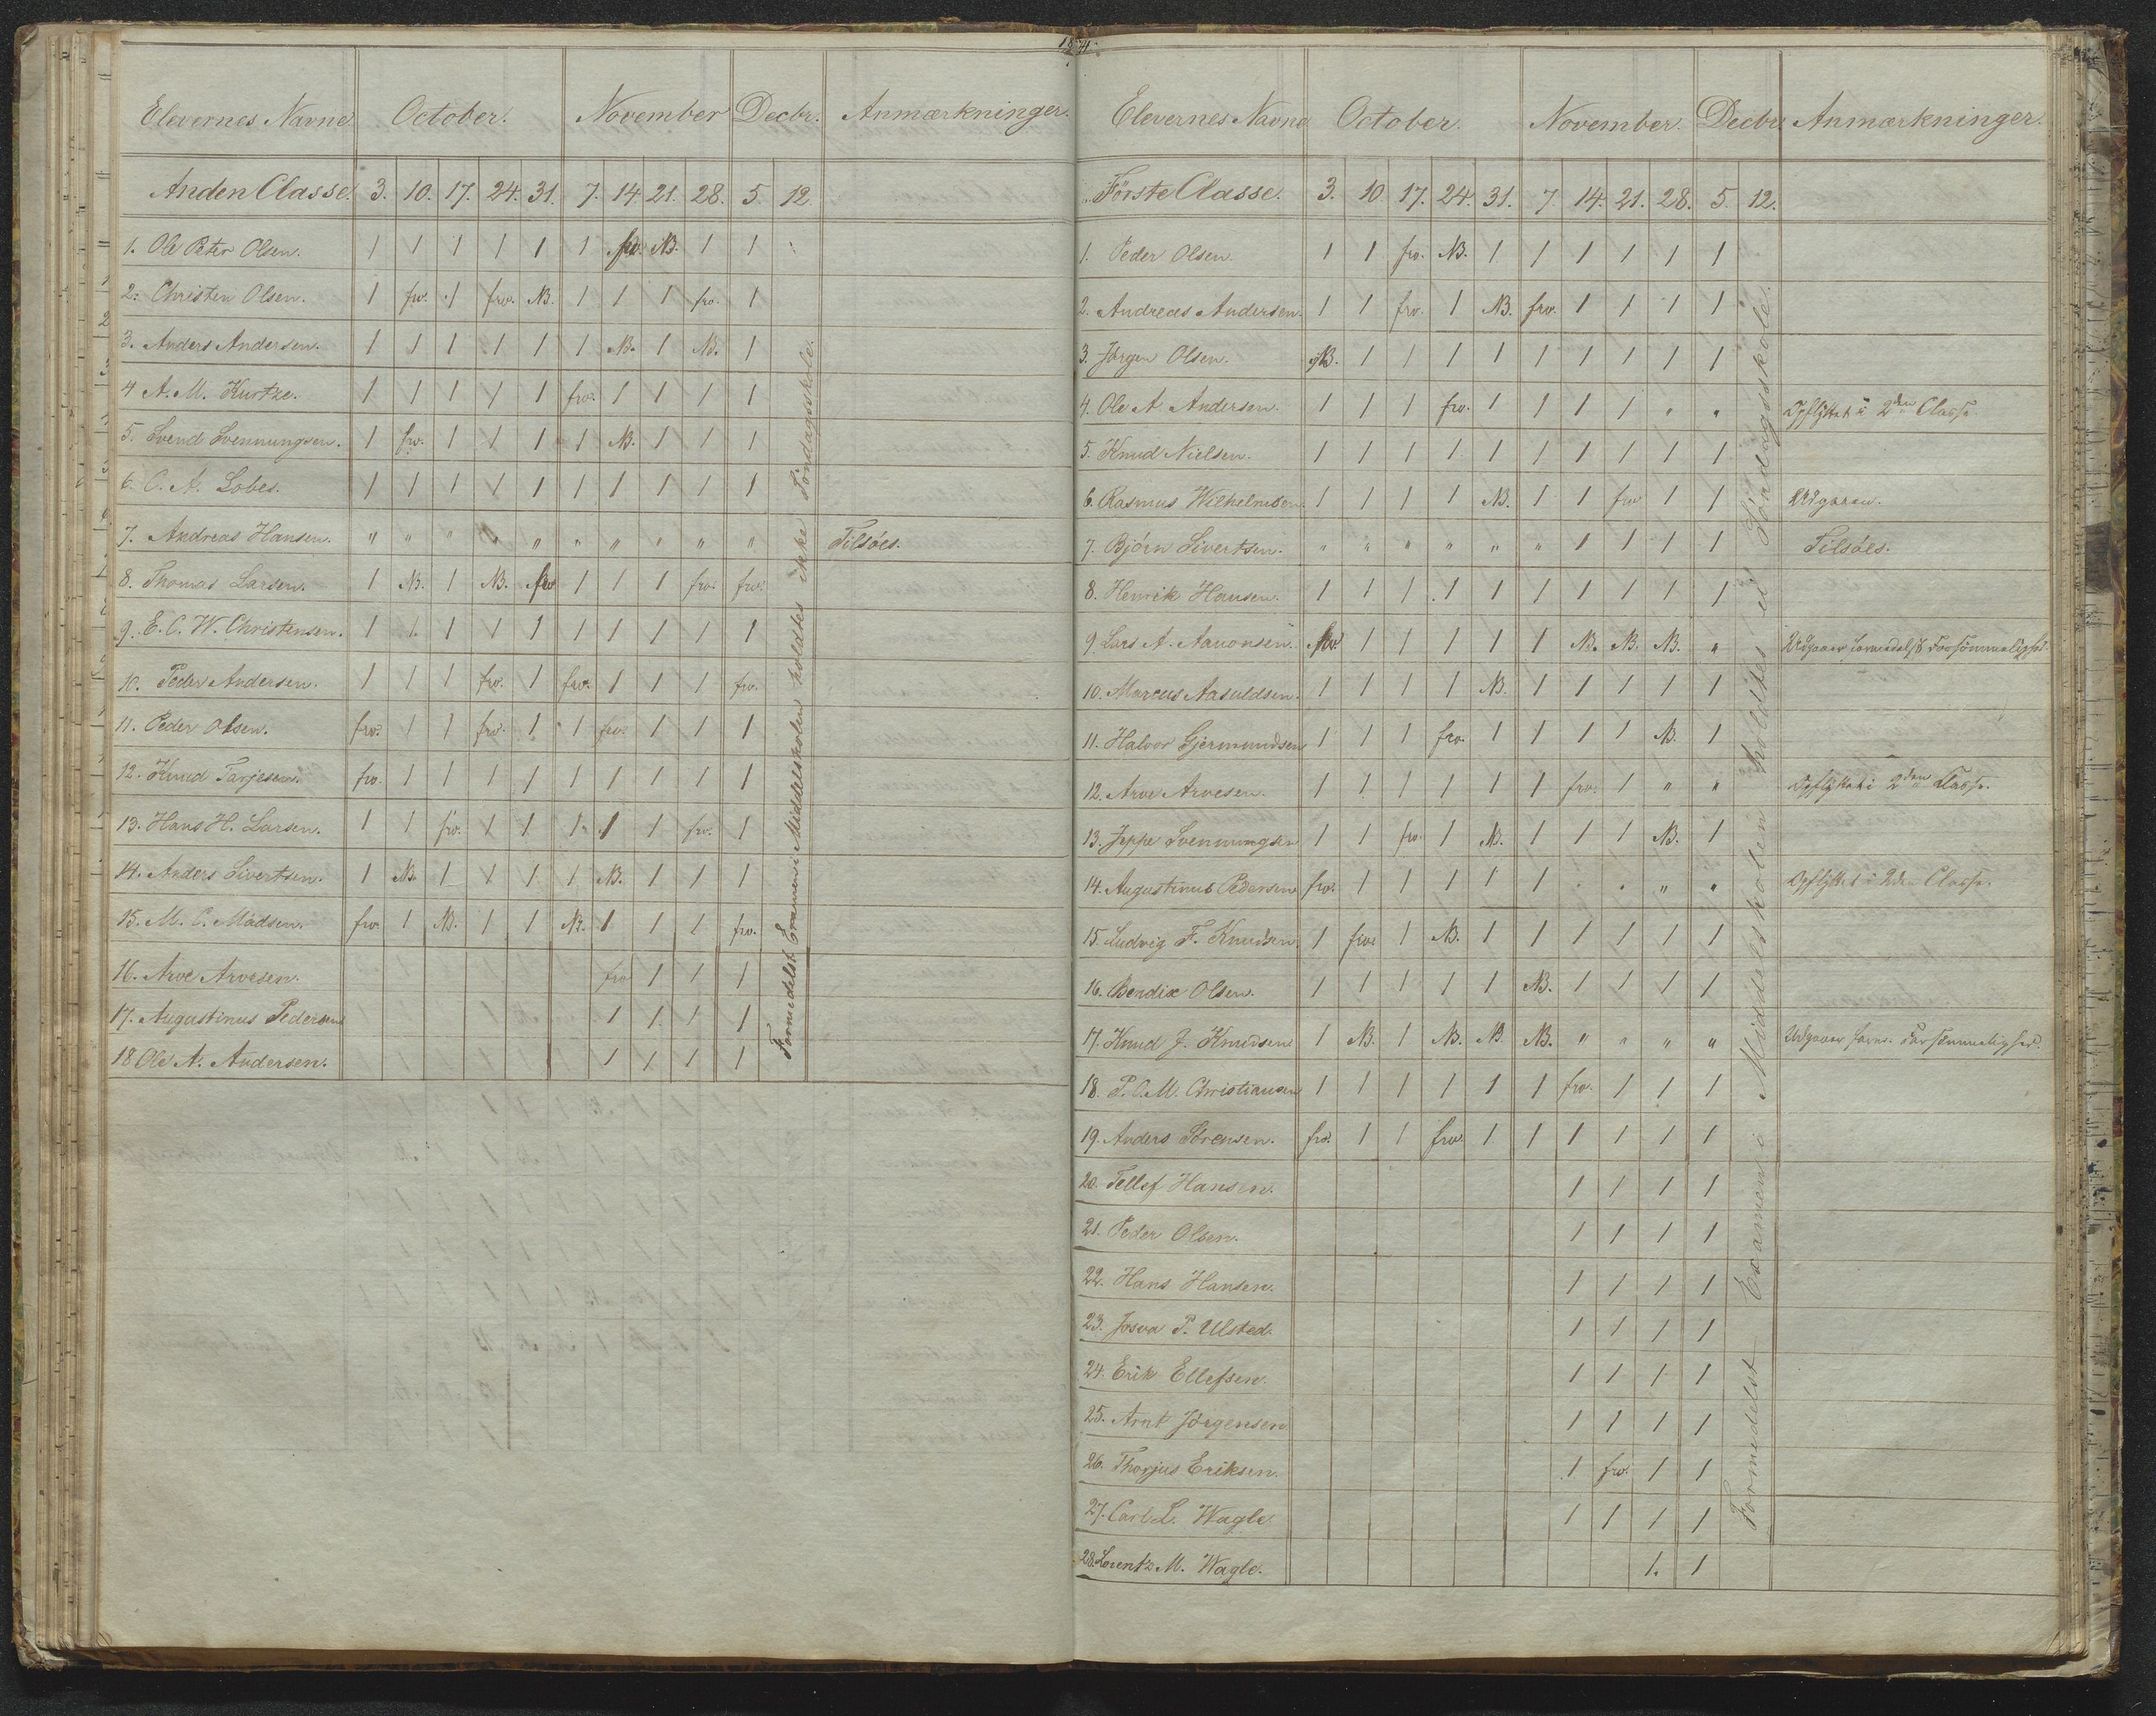 18
Elevernes Navne. October. November Decbr. Anmærkninger.
Anden Classe. 3. 10. 17. 24. 31. 7. 14. 21. 28. 5. 12.
1. Ole Peter Olsen. 1 1 1 1 1 1 frv. NB. 1 1
2. Christen Olsen. 1 frv. 1 frv. NB. 1 1 1 frv. 1
3. Anders Andersen. 1 1 1 1 1 1 NB. 1 NB. 1
4 A. M. Kurtze. 1 1 1 1 1 frv. 1 1 1 1
5. Svend Svennungsen. 1 frv. 1 1 1 1 NB. 1 1 1
6. C. A. Lobes. 1 1 1 1 1 1 1 1 1 1
7. Andreas Hansen. " " " " " " " " " " Tilsöes.
8. Thomas Larsen. 1 NB. 1 NB. frv 1 1 1 frv. frv.
9. E. C. W. Christensen. 1 1 1 1 1 1 1 1 1 1
10. Peder Andersen. 1 1 1 frv. 1 frv. 1 1 1 frv.
11. Peder Olsen. frv. 1 1 frv. 1 1 frv. 1 1 1
12. Knud Tarjesen. frv. 1 1 1 1 1 1 1 1 1
13. Hans H. Larsen. 1 1 frv. 1 1 1 1 1 frv. 1
14. Anders Sivertsen. 1 NB. 1 1 1 1 NB. 1 1 1
15. M. C. Madsen. frv 1 NB. 1 1 NB. 1 1 1 frv.
16. Arve Arvesen. frv 1 1 1
17. Augustinus Pedersen 1 1 1 1
18 Ole A. Andersen. 1 1 1 1
Formedelst Examen i Middelskolen holdtes ikke Söndagsskole.
Elevernes Navne October. November. Decbr. Anmærkninger.
Förste Classe. 3. 10. 17. 24. 31. 7. 14. 21. 28. 5. 12.
1. Peder Olsen. 1 1 frv. NB. 1 1 1 1 1 1
2. Andreas Andersen. 1 1 frv. 1 NB. frv. 1 1 1 1
3. Jörgen Olsen. NB. 1 1 1 1 1 1 1 1 1
4. Ole A. Andersen. 1 1 1 frv. 1 1 1 1 " " Opflyttet i 2den Classe.
5. Knud Nielsen. 1 1 1 1 1 1 1 1 1 1
6. Rasmus Wilhelmsen. 1 1 1 1 NB. 1 1 frv 1 1 Udgaaen.
7. Björn Sivertsen. " " " " " " 1 1 1 1 Tilsöes.
8. Henrik Hansen. 1 1 1 1 1 1 1 1 1 1
9. Lars A. Aanonsen. frv. 1 1 1 1 1 NB. NB. NB. " Udgaaer formedelst Forsömmelighed.
10. Marcus Aasuldsen. 1 1 1 1 NB. 1 1 1 1 1
11. Halvor Gjermundsen 1 1 1 frv. 1 1 1 1 NB. 1
12. Arve Arvesen. 1 1 1 1 1 1 frv. 1 " " Opflyttet i 2den Classe.
13. Jeppe Svennungsen 1 1 frv. 1 NB. 1 1 1 NB. 1
14. Augustinus Pedersen frv. 1 1 1 1 1 " " " " Opflyttet i 2den Classe.
15. Ludvig F. Knudsen 1 frv. 1 NB. 1 1 1 1 1 1
16. Bendix Olsen. 1 1 1 1 1 NB. 1 1 1 1
17. Knud J. Knudsen 1 NB. 1 NB. NB. NB. " " " " Udgaaer form. Forsömmelighed.
18. P. C. M. Christiansen 1 1 1 1 1 1 frv. 1 1 1
19. Anders Sörensen. frv. 1 1 frv. 1 1 1 1 1 1
20. Tellef Hansen. 1 1 1 1
21. Peder Olsen. 1 1 1 1
22. Hans Hansen. 1 1 1 1
23. Josva P. Ulsted. 1 1 1 1
24. Erik Ellefsen. 1 1 1 1
25. Arnt Jörgensen 1 1 1 1
26. Thorjus Eriksen. 1 frv. 1 1
27. Carl L. Wagle 1 1 1 1
28. Lorentz M. Wagle. 1. 1
Formedelst Examen i Middelskolen holdtes ei Söndagsskole.